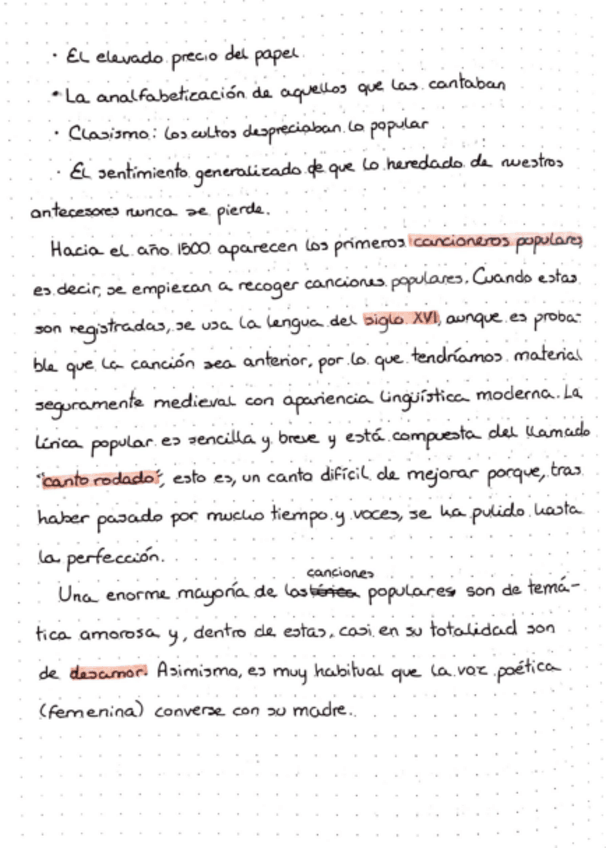 · El elevado precio del papel.
· La analfabetización de aquellos que las cantaban
· Clasismo: los cultos despreciaban lo popular
· El sentimiento generalizado de que lo heredado de nuestros
antecesores nunca se pierde.
Hacia el año 1500 aparecen los primeros cancioneros populares,
es decir, se empiezan a recoger canciones populares. Cuando estas
son registradas, se usa la lengua del siglo XVI, aunque es proba-
ble que la canción sea anterior, por lo que tendríamos material
seguramente medieval con apariencia lingüística moderna. La
lírica popular es sencilla y breve y está compuesta del llamado
"canto rodado", esto es, un canto difícil de mejorar porque, tras
haber pasado por mucho tiempo y voces, se ha pulido hasta
la perfección.
canciones
Una enorme mayoría de las populares son de temá-
tica amorosa y, dentro de estas, casi en su totalidad son
de desamor. Asimismo, es muy habitual que la voz poética
(femenina) converse con su madre.